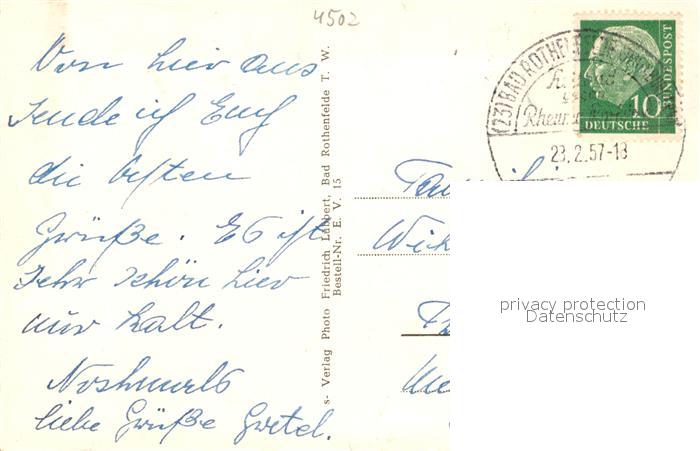 4502
Von hier aus
sende ich Euch
die besten
Grüße. Es ist
sehr schön hier
nur kalt.
Nochmals
liebe Grüße Gretel.
s- Verlag Photo Friedrich Lübbert, Bad Rothenfelde T. W.
Bestell-Nr. E. V. 15
(23) BAD ROTHENFELDE
Rheuma
23.2.57-18
10
DEUTSCHE
BUNDESPOST
privacy protection
Datenschutz